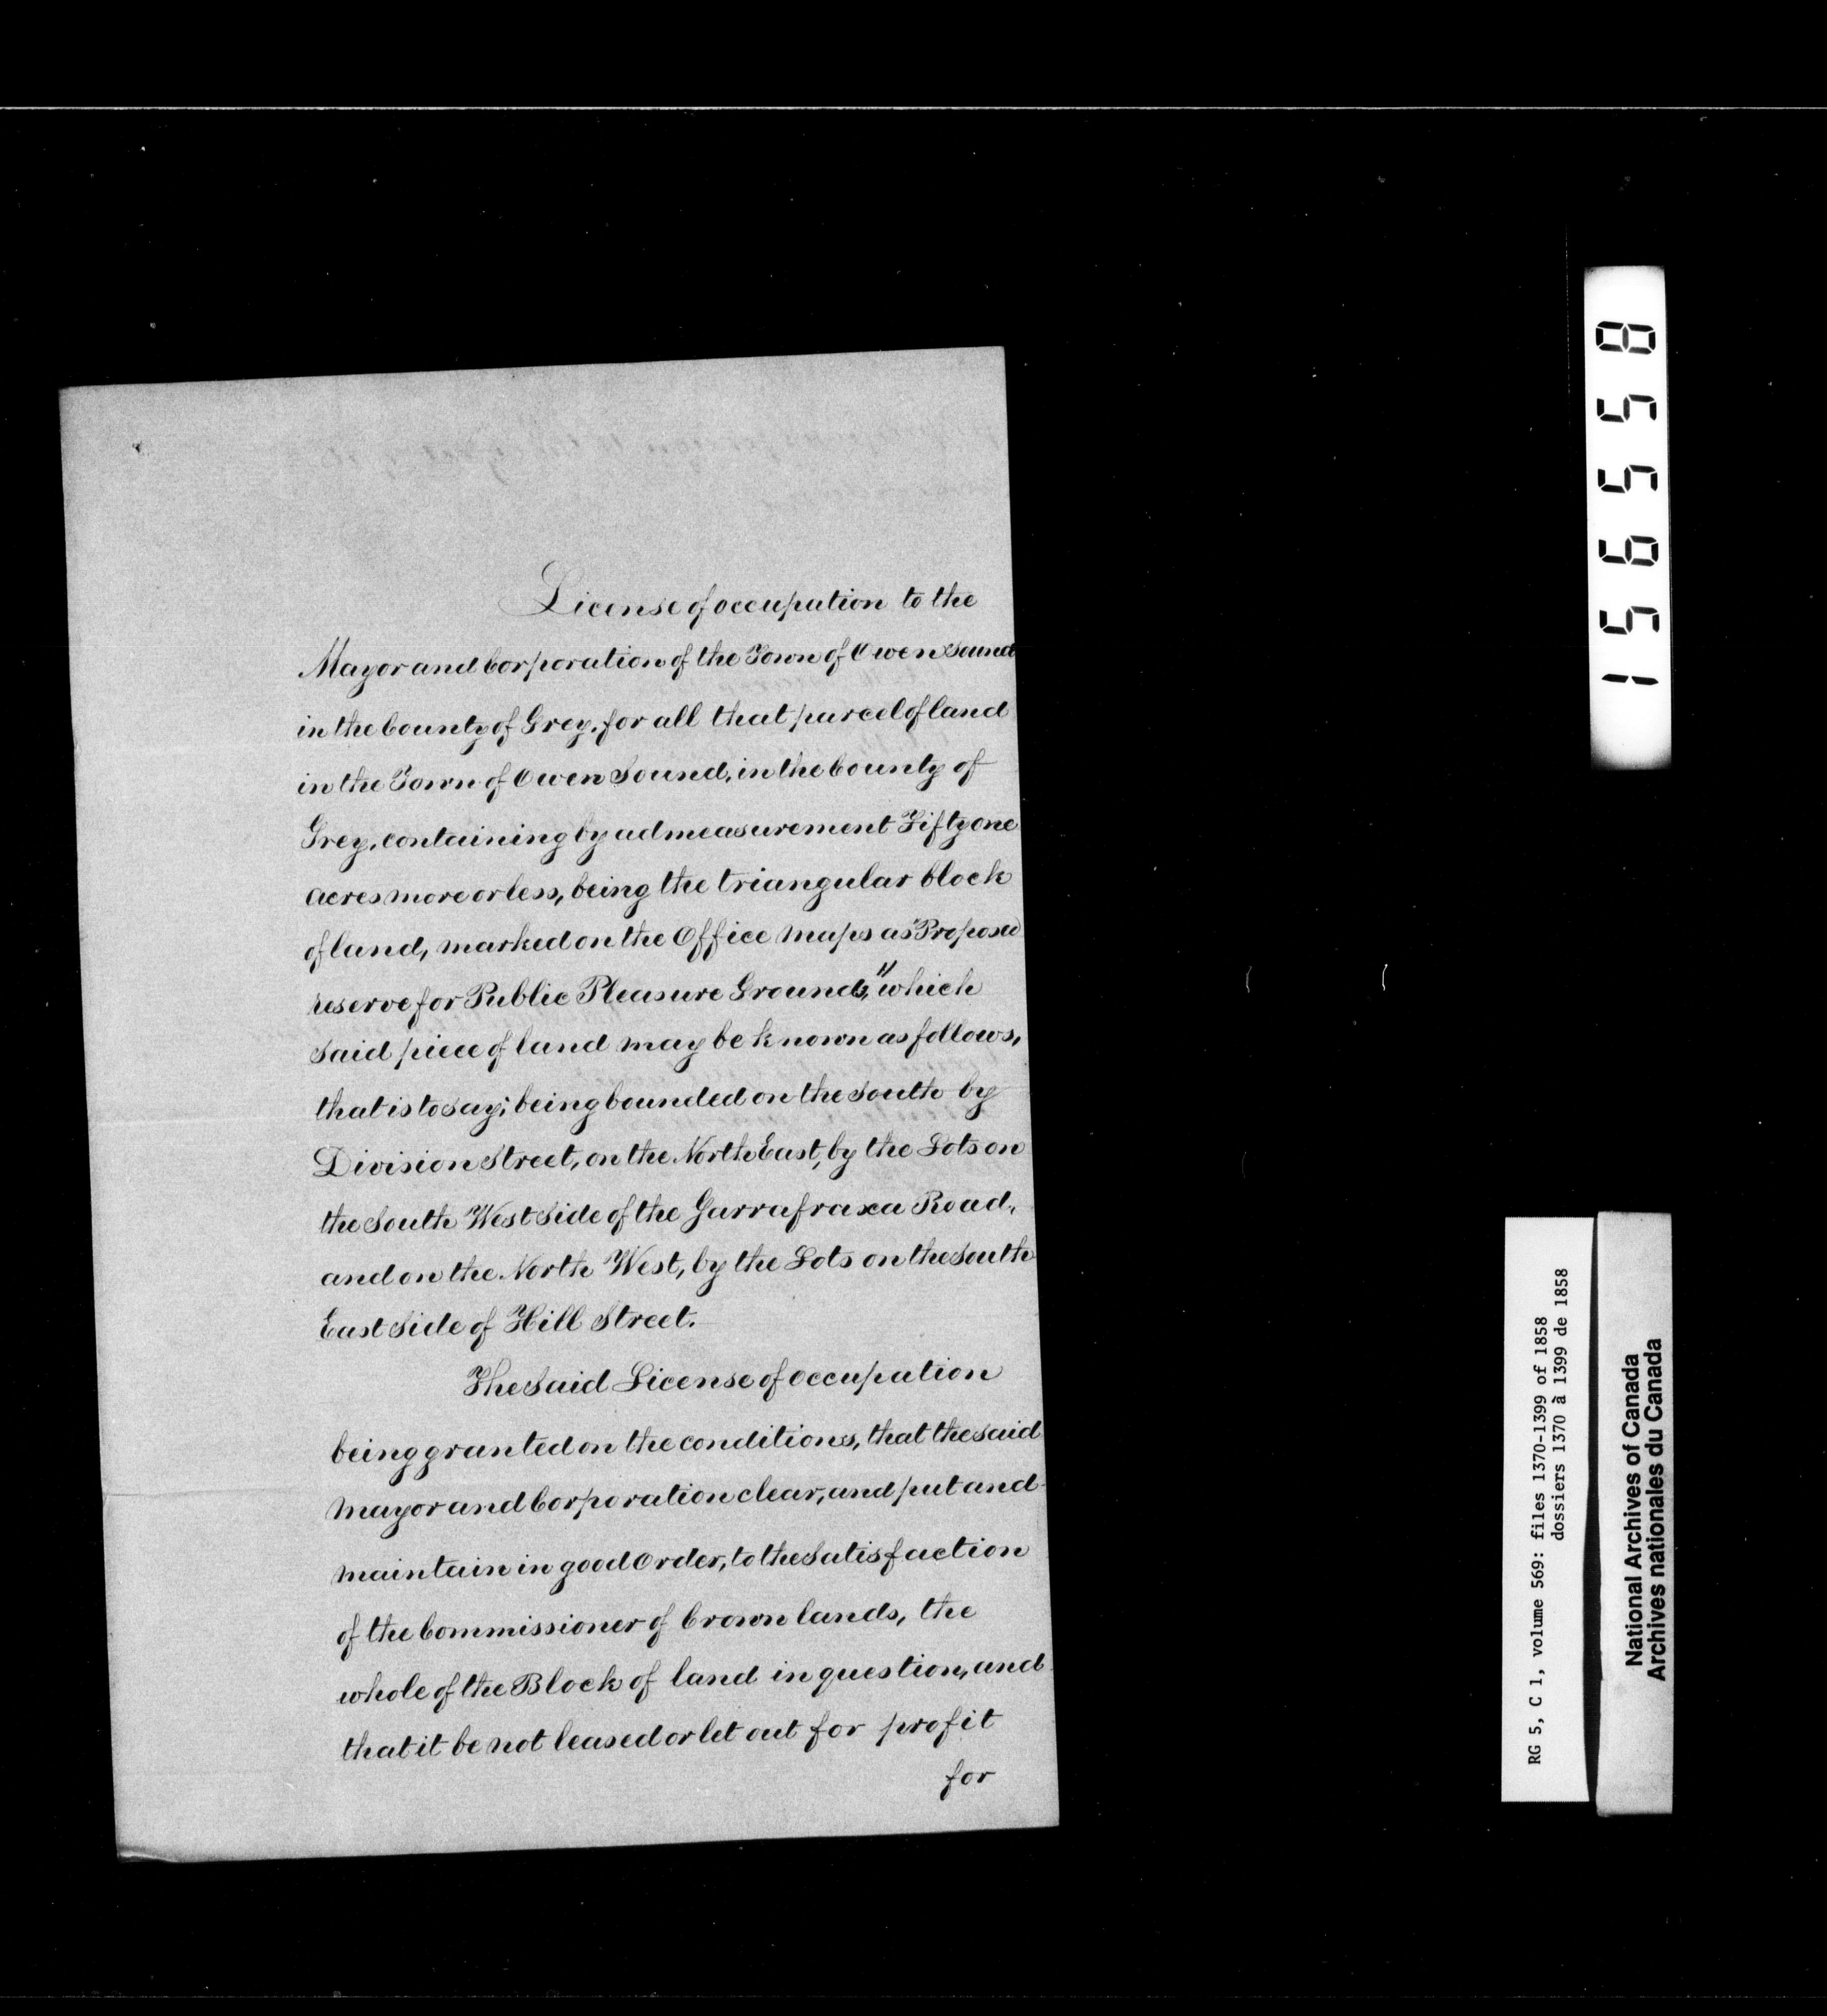 License of occupation to the
Mayor and Corporation of the Town of Owen Sound
in the County of Grey, for all that parcel of land
in the Town of Owen Sound, in the County of
Grey, containing by admeasurement Fifty one
acres more or less, being the triangular block
of land, marked on the Office maps as "Proposed
reserve for Public Pleasure Grounds," which
said piece of land may be known as follows,
that is to say; being bounded on the South by
Division Street, on the North East, by the Lots on
the South West Side of the Garrafraxa Road,
and on the North West, by the Lots on the South
East Side of Hill Street.
The Said License of occupation
being granted on the conditions, that the said
Mayor and Corporation clear, and put and
maintain in good Order, to the Satisfaction
of the Commissioner of Crown lands, the
whole of the Block of land in question, and
that it be not leased or let out for profit
for
156558
RG 5, C 1, volume 569: files 1370-1399 of 1858
dossiers 1370 à 1399 de 1858
National Archives of Canada
Archives nationales du Canada